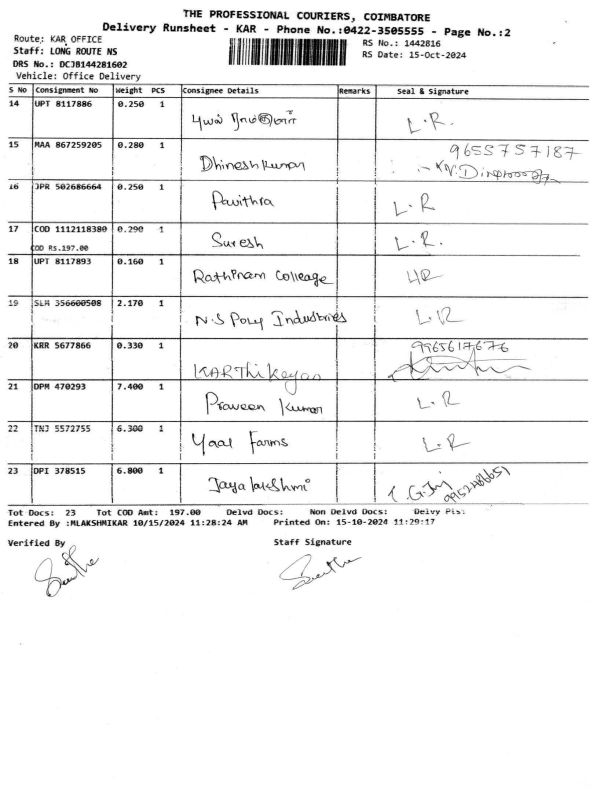 THE PROFESSIONAL COURIERS, COIMBATORE
Delivery Runsheet - KAR - Phone No.:0422-3505555 - Page No.:2
Route: KAR OFFICE
RS No.: 1442816
Staff: LONG ROUTE NS
RS Date: 15-Oct-2024
DRS No.: DCJB144281602
Vehicle: Office Delivery
S No Consignment No Weight PCS Consignee Details Remarks Seal & Signature
14 UPT 8117886 0.250 1 L.R.
15 MAA 867259205 0.280 1 Dhineshkumar 9655757187
16 JPR 502686664 0.250 1 Pavithra L.R
17 COD 1112118380 0.290 1 Suresh L.R.
COD Rs.197.00
18 UPT 8117893 0.160 1 Rathinam Colleage LR
19 SLM 356600508 2.170 1 N.S Poly Industries L.R
20 KRR 5677866 0.330 1 KARThikeyan 9965617676
21 DPM 470293 7.400 1 Praveen Kumar L.R
22 TNJ 5572755 6.300 1 Yaal Farms L.R
23 DPI 378515 6.800 1 Jayalakshmi
Tot Docs: 23 Tot COD Amt: 197.00 Delvd Docs: Non Delvd Docs: Delvy Pts:
Entered By :MLAKSHMIKAR 10/15/2024 11:28:24 AM Printed On: 15-10-2024 11:29:17
Verified By Staff Signature